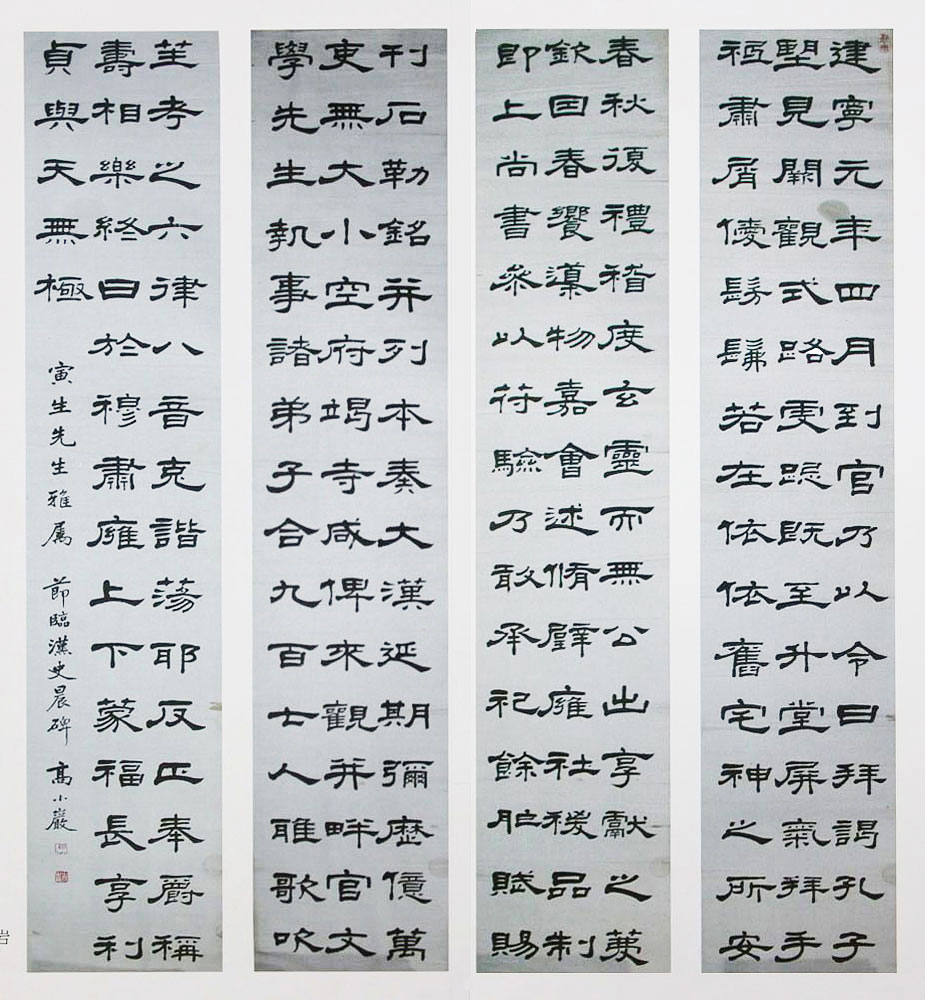 建寧元年四月到官乃以令日拜謁孔子
朢見闕觀式路虔跽既至升堂屏氣拜手
祗肅屑僾髣髴若在依依舊宅神之所安
春秋復禮稽度玄靈而無公出享獻之薦
欽因春饗導物嘉會述脩辟雍社稷品制
即上尚書參以符驗乃敢承祀餘胙賦賜
刊石勒銘并列本奏大漢延期彌歷億萬
吏無大小空府竭寺咸俾來觀并畔官文
學先生執事諸弟子合九百七人雅歌吹
笙考之六律八音克諧蕩耶反正奉爵稱
壽相樂終日於穆肅雍上下蒙福長享利
貞與天無極
寅生先生雅屬 節臨漢史晨碑 高小巖
岩